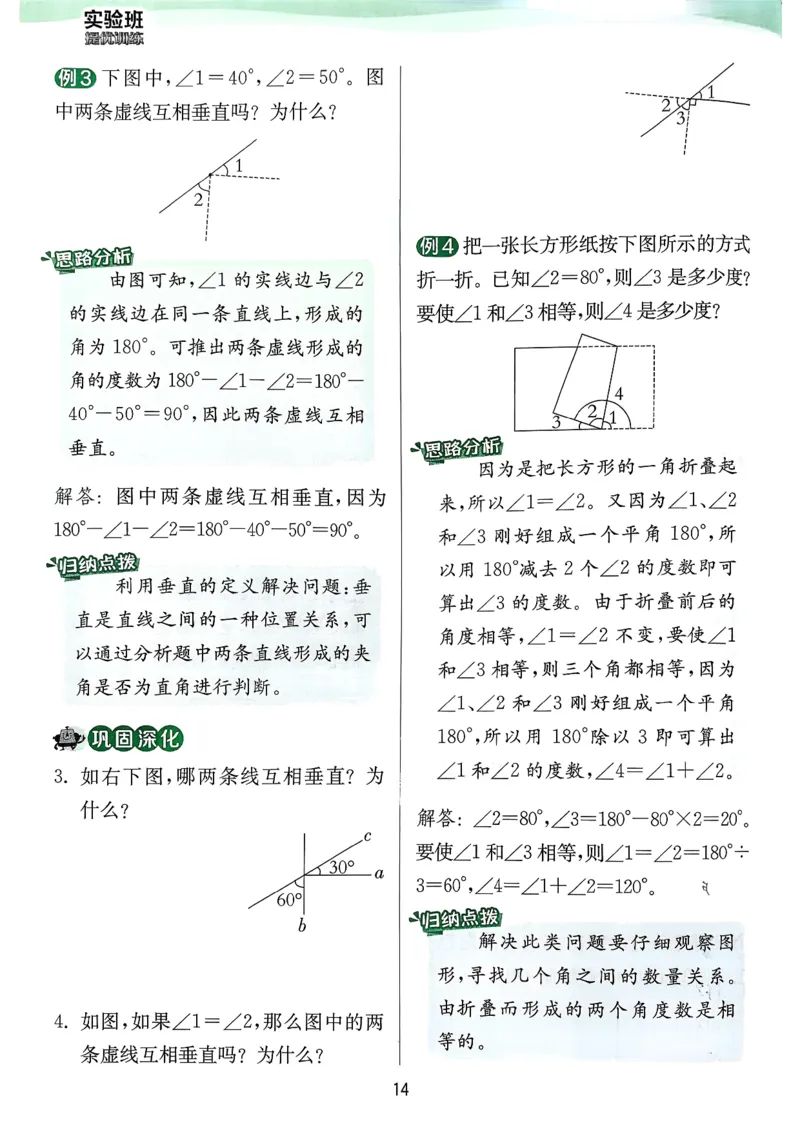 实验班
提优训练
例3 下图中,∠1=40°,∠2=50°。图
中两条虚线互相垂直吗? 为什么?
1
2
思路分析
由图可知,∠1 的实线边与∠2
的实线边在同一条直线上,形成的
角为 180°。可推出两条虚线形成的
角的度数为 180°-∠1-∠2=180°-
40°-50°=90°,因此两条虚线互相
垂直。
解答: 图中两条虚线互相垂直,因为
180°-∠1-∠2=180°-40°-50°=90°。
归纳点拨
利用垂直的定义解决问题:垂
直是直线之间的一种位置关系,可
以通过分析题中两条直线形成的夹
角是否为直角进行判断。
巩固深化
3. 如右下图,哪两条线互相垂直? 为
什么?
c
30°
a
60°
b
4. 如图,如果∠1=∠2,那么图中的两
条虚线互相垂直吗? 为什么?
1
2
3
例4 把一张长方形纸按下图所示的方式
折一折。已知∠2=80°,则∠3 是多少度?
要使∠1和∠3相等,则∠4是多少度?
4
3 2 1
思路分析
因为是把长方形的一角折叠起
来,所以∠1=∠2。又因为∠1、∠2
和∠3 刚好组成一个平角 180°,所
以用 180°减去 2 个∠2 的度数即可
算出∠3 的度数。由于折叠前后的
角度相等,∠1=∠2 不变,要使∠1
和∠3相等,则三个角都相等,因为
∠1、∠2 和∠3 刚好组成一个平角
180°,所以用 180°除以 3 即可算出
∠1和∠2的度数,∠4=∠1+∠2。
解答: ∠2=80°,∠3=180°-80°×2=20°。
要使∠1和∠3相等,则∠1=∠2=180°÷
3=60°,∠4=∠1+∠2=120°。
归纳点拨
解决此类问题要仔细观察图
形,寻找几个角之间的数量关系。
由折叠而形成的两个角度数是相
等的。
14